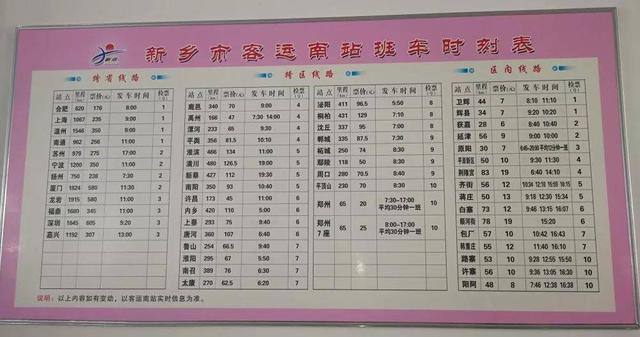 新乡市客运南站班车时刻表
跨省线路
站点 里程 票价(元) 发车时间 检票
合肥 620 176 8:00 1
上海 1067 235 9:00 1
温州 1546 350 8:00 1
南通 962 256 11:00 1
苏州 979 275 17:00 2
宁波 1200 350 11:00 2
扬州 750 238 7:30 2
厦门 1824 580 11:30 2
龙岩 1915 580 11:00 3
福鼎 1680 345 11:00 3
深圳 1645 605 9:20 3
嘉兴 1192 307 13:00 3
跨区线路
站点 里程 票价(元) 发车时间 检票
鹿邑 340 70 9:00 4
禹州 167 47 7:30 14:00 4
漯河 233 65 9:30 4
平舆 356 81.5 10:10 4
淮滨 466 134 11:00 5
潢川 480 126.5 19:00 5
新蔡 427 112 19:30 5
南阳 350 93 10:40 5
许昌 173 45 9:00 6
内乡 420 110 9:00 6
上蔡 293 75 9:00 6
唐河 360 107 9:30 6
鲁山 264 55 9:40 7
淮阳 295 67 5:50 7
南召 389 76 6:30 7
太康 270 62.5 6:20 7
站点 里程 票价(元) 发车时间 检票
泌阳 411 96.5 5:50 8
桐柏 431 129 7:10 8
沈丘 337 95 7:00 8
郸城 335 87.5 9:30 9
柘城 250 74 6:30 9
鄢陵 118 50 7:30 9
周口 280 70.5 8:40 9
平顶山 230 70 8:50 10
郑州 65 20 7:30~17:00 平均30分钟一班 10
郑州7座 65 25 8:00~17:00 平均30分钟一班 10
区内线路
站点 里程 票价(元) 发车时间 检票
卫辉 44 7 8:10 11:10 1
辉县 34 7 9:20 10:20 1
获嘉 28 6 10:40 2
延津 56 9 9:00 10:00 2
原阳 30 7 6:45~20:00 平均12分钟一班 3
平原新区 50 10 9:30 11:30 4
荆隆宫 83 21 9:30 11:40 4
齐街 56 12 5
蒋庄 50 9 12:30 5
白寨 73 12 9:46 13:15 16:07 6
原河街 78 19 15:20 6
包厂 57 10 10:42 16:43 7
韩董庄 55 12 11:40 16:10 7
路寨 53 10 9:28 12:55 15:50 10
许寨 56 10 9:36 13:05 16:30 10
阳阿 48 8 7:46 12:38 16:38 10
说明：以上内容如有变动，以客运南站实时信息为准。